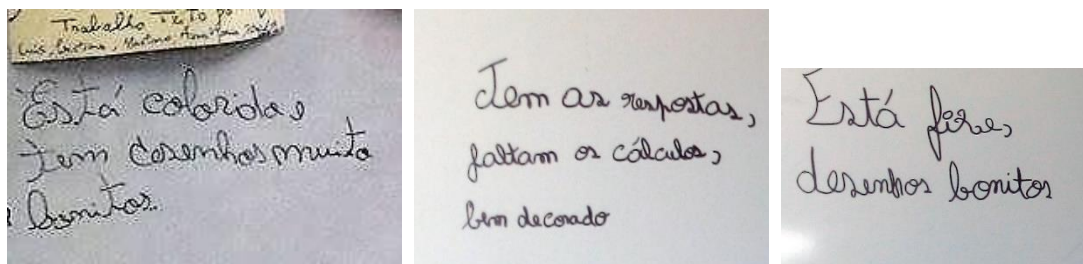 Trabalho
Está colorido,
tem desenhos muito
bonitos.
Tem as respostas,
faltam os cálculos,
bem decorado
Está fixe,
desenhos bonitos